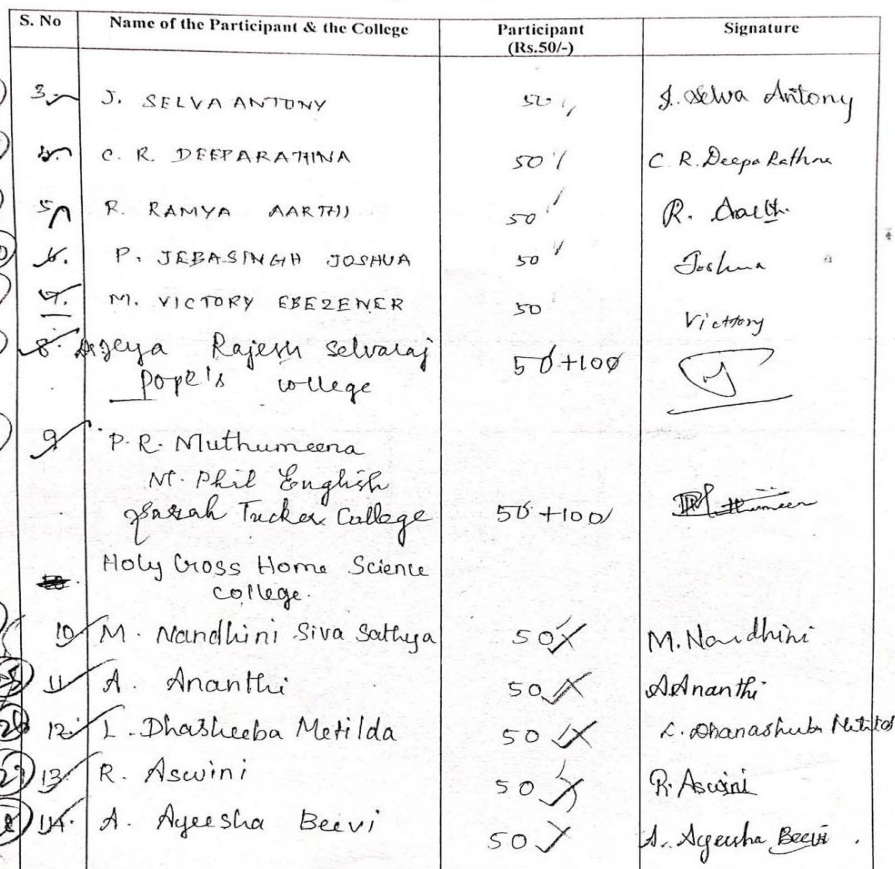 S. No Name of the Participant & the College Participant (Rs.50/-) Signature
3. J. SELVA ANTONY 50 J. Selva Antony
4. C. R. DEEPARATHINA 50 C. R. Deepa Rathna
5 R. RAMYA AARTHI 50 R. Aarthi
6. P. JEBASINGH JOSHUA 50 Joshua
7. M. VICTORY EBEZENER 50 Victory
8. Jeya Rajesh Selvaraj 50+100
Pope's college
9 P. R. Muthumeena
M. Phil English
Sarah Tucker College 50+100
Holy Cross Home Science
college.
10 M. Nandhini Siva Sathya 50 M. Nandhini
11 A. Ananthi 50 A Ananthi
12. L. Dhasheeba Metilda 50
13. R. Aswini 50 R. Aswini
14. A. Ayeesha Beevi 50 A. Ayeesha Beevi.